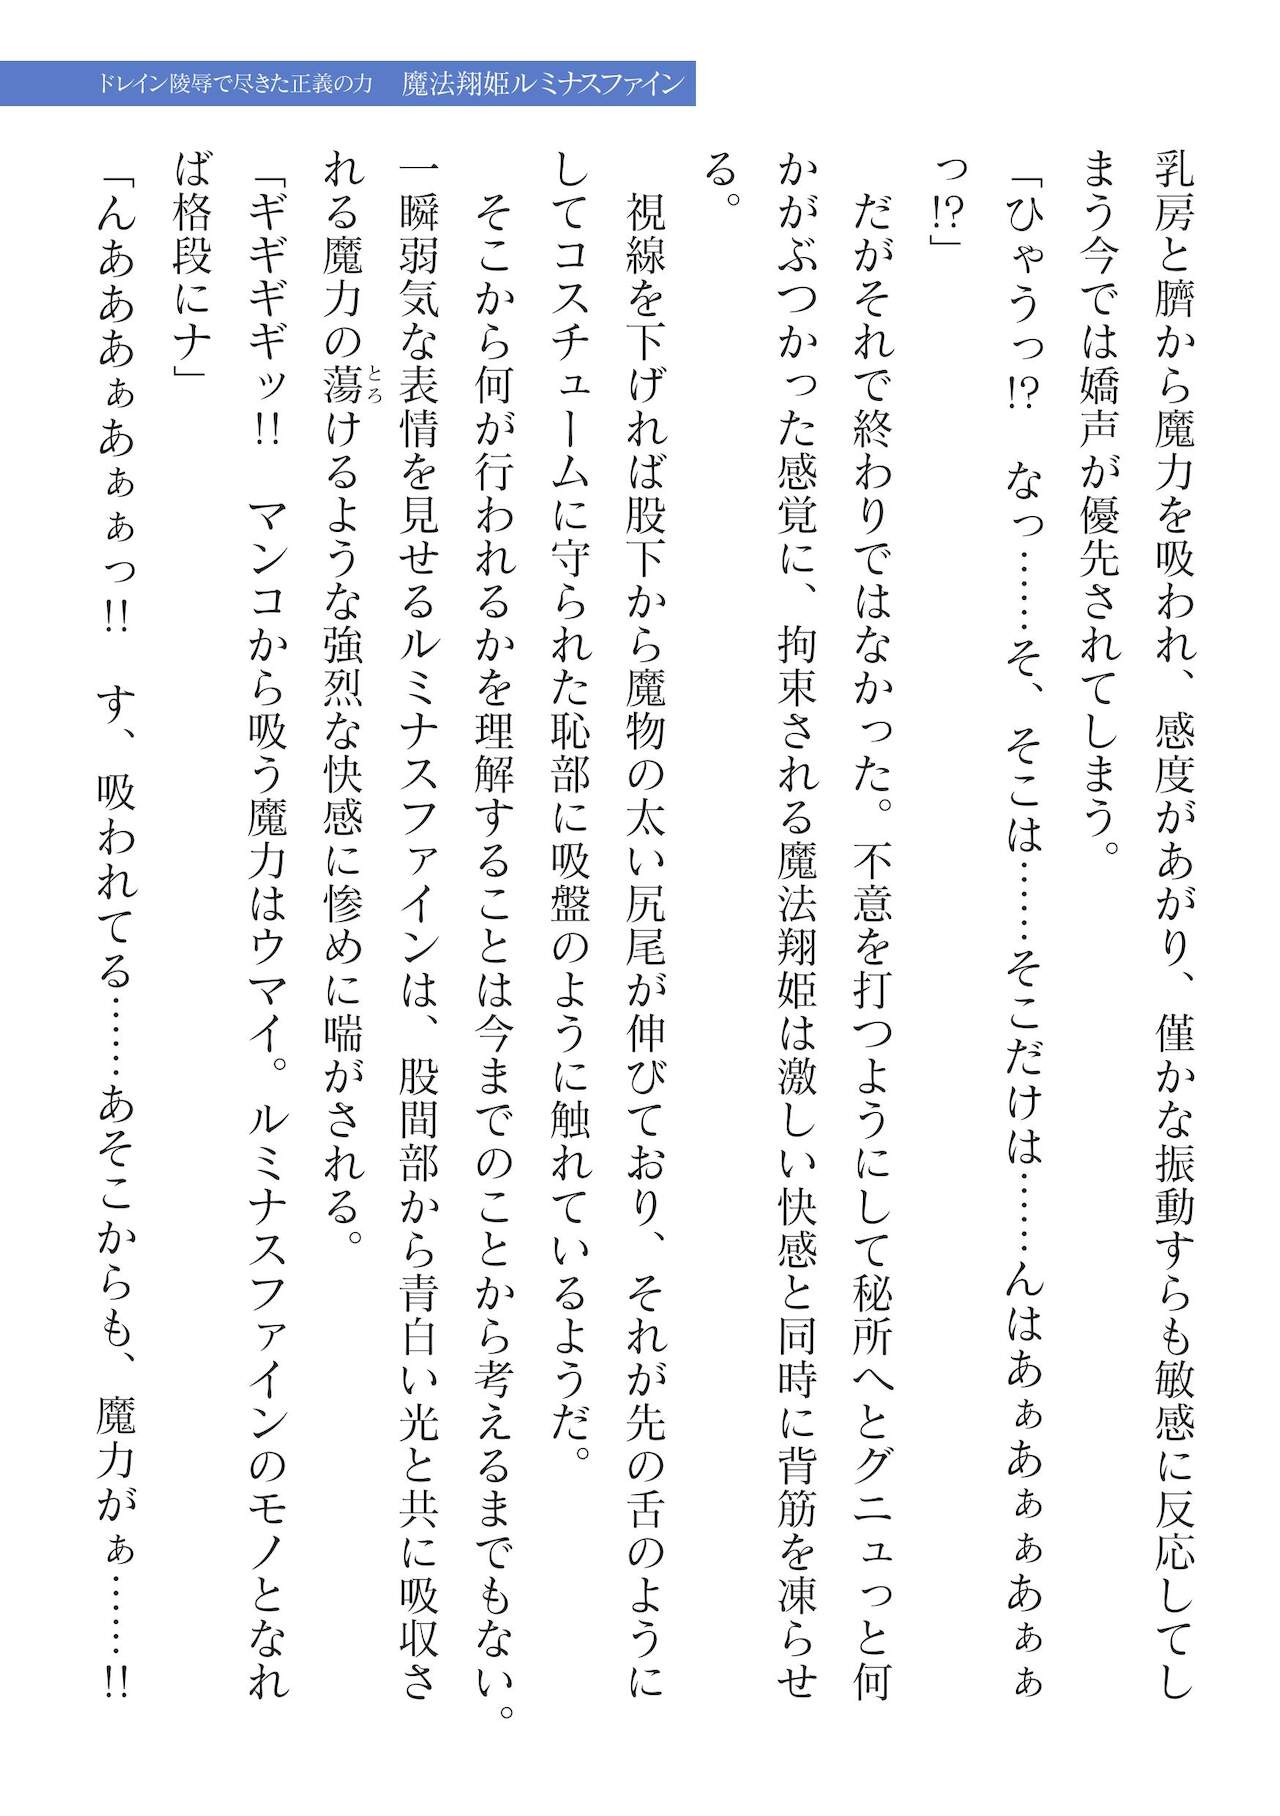 ドレイン陵辱で尽きた正義の力　魔法翔姫ルミナスファイン
乳房と臍から魔力を吸われ、感度があがり、僅かな振動すらも敏感に反応してし
まう今では嬌声が優先されてしまう。
「ひゃうっ!?　なっ……そ、そこは……そこだけは……んはあぁあぁぁあぁぁ
っ!?」
　だがそれで終わりではなかった。不意を打つようにして秘所へとグニュっと何
かがぶつかった感覚に、拘束される魔法翔姫は激しい快感と同時に背筋を凍らせ
る。
　視線を下げれば股下から魔物の太い尻尾が伸びており、それが先の舌のように
してコスチュームに守られた恥部に吸盤のように触れているようだ。
　そこから何が行われるかを理解することは今までのことから考えるまでもない。
一瞬弱気な表情を見せるルミナスファインは、股間部から青白い光と共に吸収さ
れる魔力の蕩けるような強烈な快感に惨めに喘がされる。
とろ
「ギギギギッ!!　マンコから吸う魔力はウマイ。ルミナスファインのモノとなれ
ば格段にナ」
「んあああぁあぁぁっ!!　す、吸われてる……あそこからも、魔力がぁ……!!